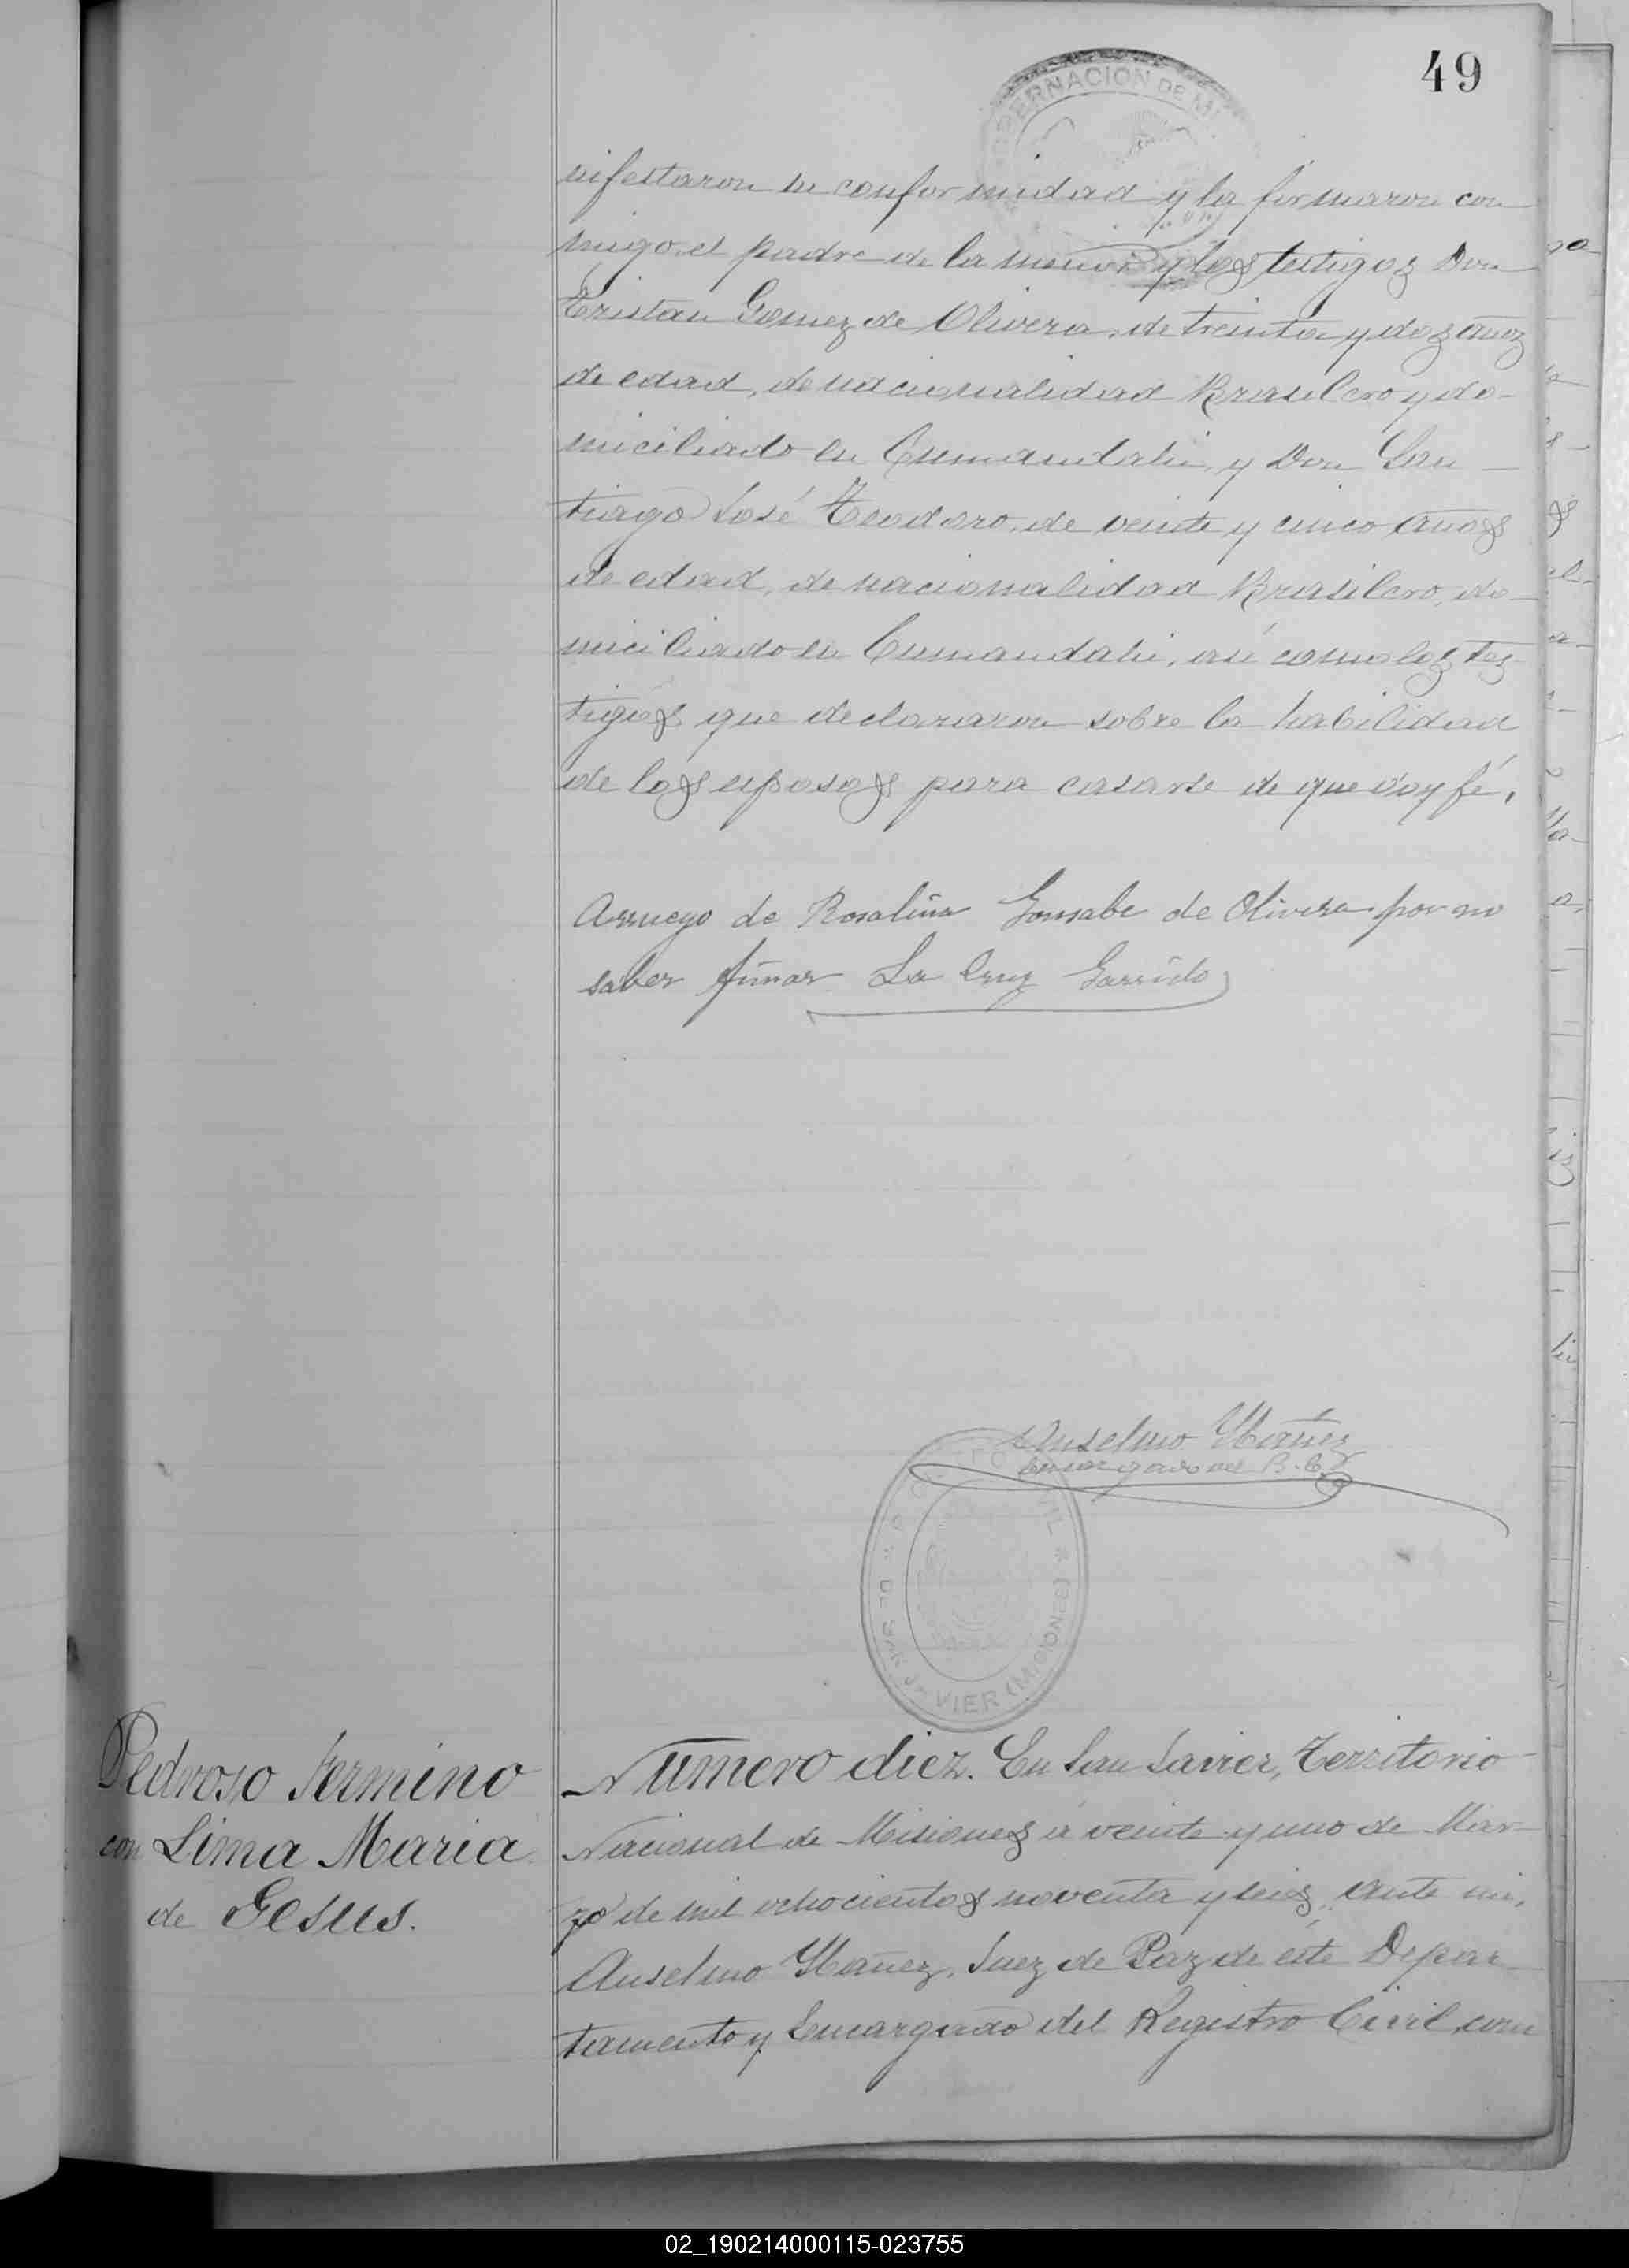 49
GOBERNACION DE MI
nifestaron su conformidad y la firmaron con
migo, el padre de la menor y los testigos Don
Tristan Gomez de Olivera, de treinta y dos años
de edad, de nacionalidad Brasilero y do-
miciliado en Cumandahi, y Don San-
tiago José Teodoro, de veinte y cinco años
de edad, de nacionalidad Brasilero, do-
miciliado en Cumandahi, asi como los tes-
tigos que declararon sobre la habilidad
de los esposos para casarse de que doy fé.
Arruego de Rosalina Gonsabe de Olivera por no
saber firmar La Cruz Garrido
Anselmo Ybañez
Encargado del R. C.
DE SAN JAVIER (MISIONES)
Pedroso Fermino
con Lima Maria
de Gesus.
Numero diez. En San Javier, Territorio
Nacional de Misiones á veinte y uno de Mar-
zo de mil ochocientos noventa y seis, ante mi,
Anselmo Ybañez, Juez de Paz de este Depar-
tamento y Encargado del Registro Civil, com
02_190214000115-023755